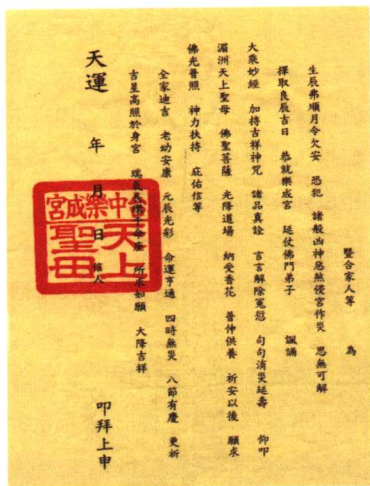 暨合家人等　為
生辰弗順月令欠安　恐犯　諸般凶神惡煞侵宮作災　思無可解
擇取良辰吉日　恭就樂成宮　延仗佛門弟子　諷誦
大乘妙經　加持吉祥神咒　諸品真詮　言言解除冤愆　句句消災延壽　仰叩
湄洲天上聖母　佛聖菩薩　光降道場　納受香花　普伸供養　祈安以後　願求
佛光普照　神力扶持　庇佑信等
全家迪吉　老幼安康　元辰光彩　命運亨通　四時無災　八節有慶　更祈
吉星高照於身宮　瑞氣 所求如願　大降吉祥
天運　年　月　日　人　叩拜上申
台中樂成宮
天上
聖母